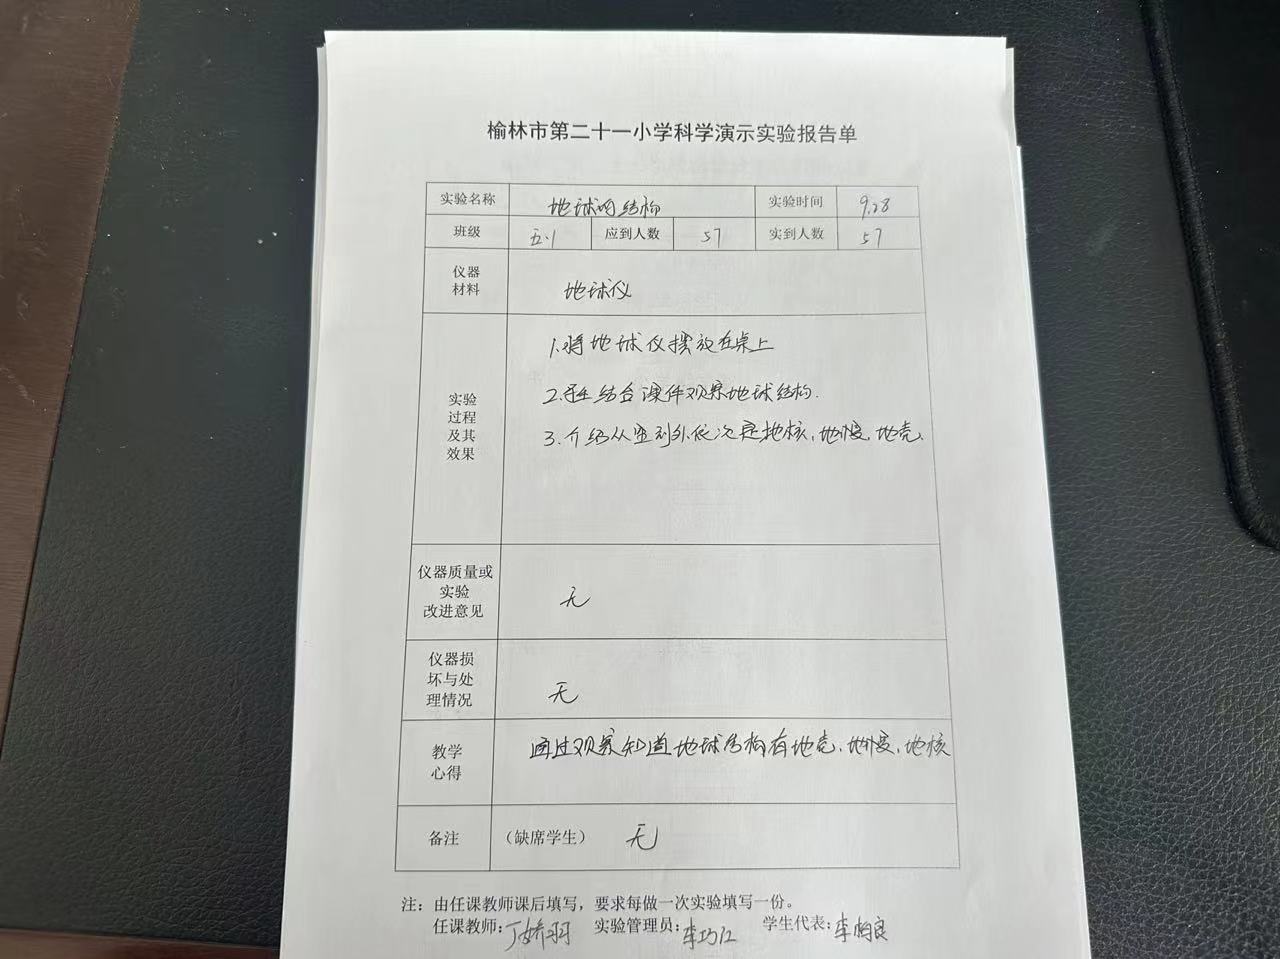 榆林市第二十一小学科学演示实验报告单
实验名称 地球的结构 实验时间 9.28
班级 五.1 应到人数 57 实到人数 57
仪器
材料
地球仪
实验
过程
及其
效果
1.将地球仪摆放在桌上
2.学生结合课件观察地球结构.
3.介绍从里到外依次是地核、地幔、地壳.
仪器质量或
实验
改进意见
无
仪器损
坏与处
理情况
无
教学
心得
通过观察知道地球结构有地壳、地幔、地核
备注 （缺席学生） 无
注：由任课教师课后填写，要求每做一次实验填写一份。
任课教师: 丁娇羽 实验管理员: 李巧红 学生代表: 李